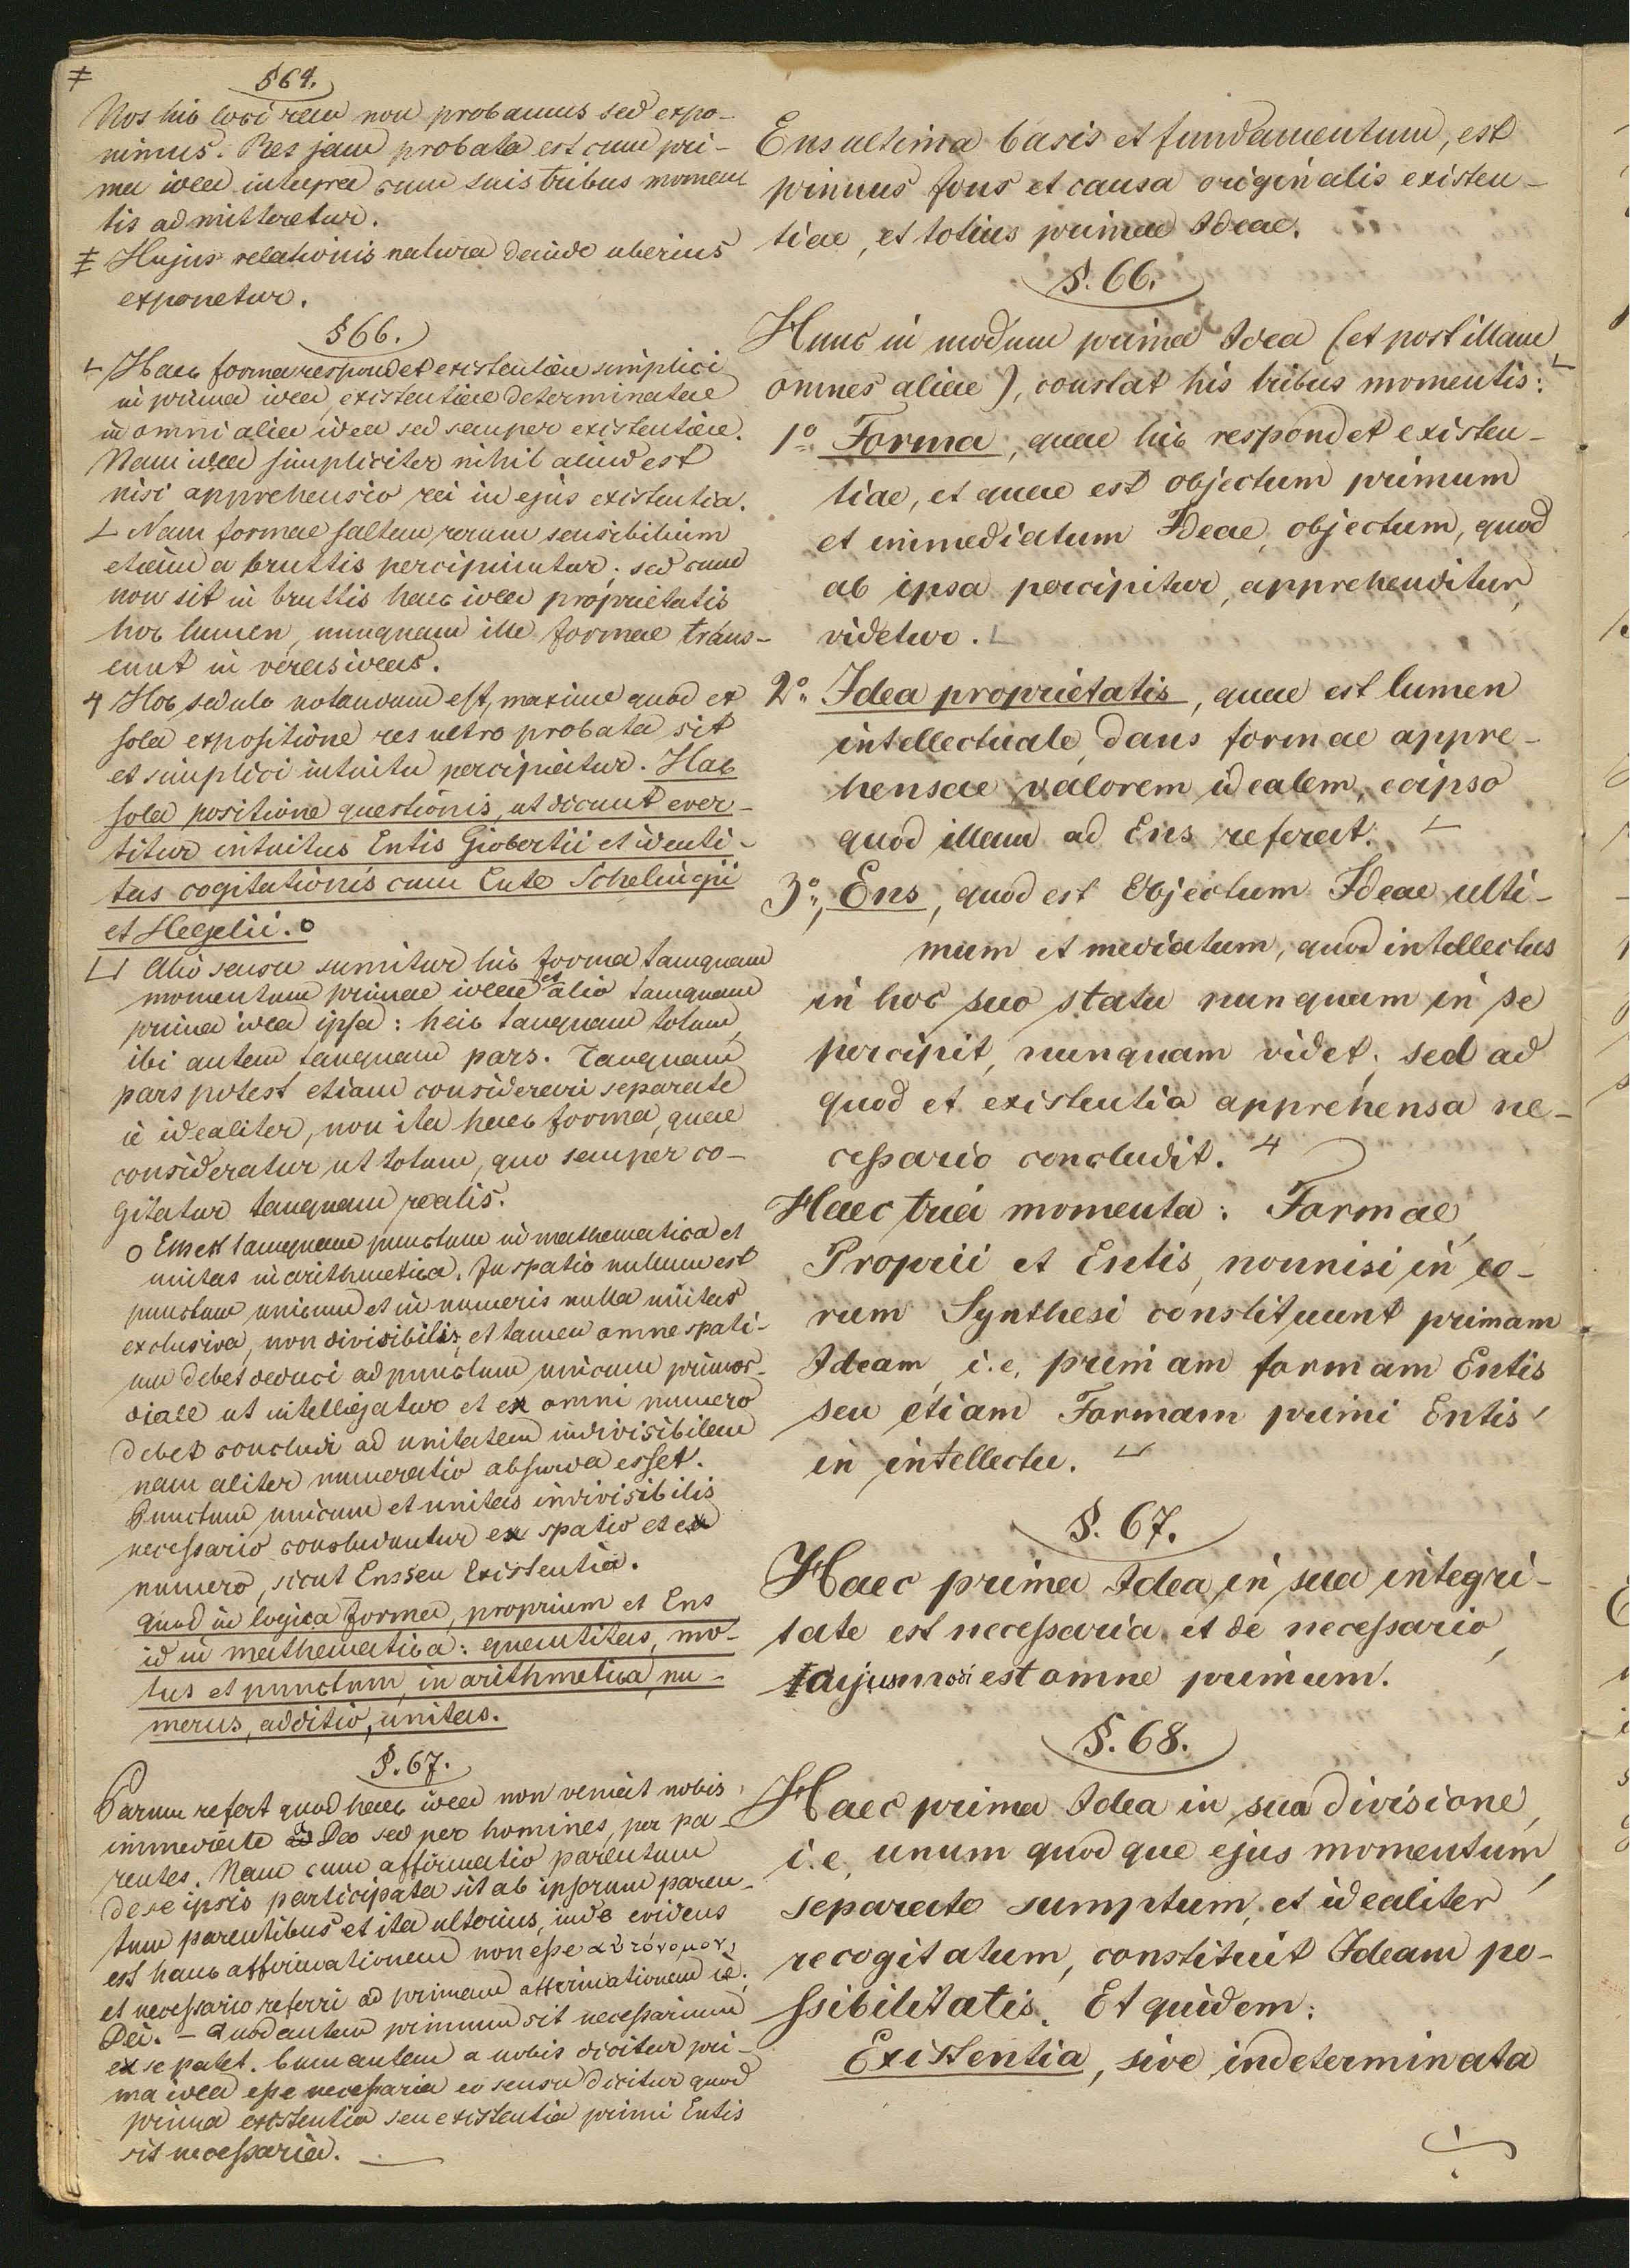 ≠
§64.
Nos hic loci rem non probamus sed expo-
nimus. Res jam probata est cum pri-
ma idea integra cum suis tribus momen
tis admitteretur.
Hujus relationis natura deinde uberius
exponetur.
§66.
Haec forma respondet existentiae simplici
in prima idea, existentiae determinatae
in omni alia idea sed semper existentiae.
Nam idea simpliciter nihil aliud est
nisi apprehensio rei in ejus existentia.
Nam formae saltem rerum sensibilium
etiam a bruttis percipiuntur; sed cum
non sit in bruttis haec idea proprietatis
hoc lumen, nunquam ille formae trans-
eunt in veras ideas.
4 Hoc sedulo notandum est, maxime quod ex
sola expositione res ultro probata sit
et simplici intuitu percipiatur. Hac
sola positione questionis, ut dicunt ever-
titur intuitus Entis Giobertii et identi-
tas cogitationis cum Ente Schelingii
et Hegelii. o
Alio sensu sumitur hic forma tamquam
momentum primae ideae et alio tamquam
prima idea ipsa: heic tanquam totum,
ibi autem tanquam pars. Tanquam
pars potest etiam considerari separate
i.e idealiter, non ita haec forma, quae
consideratur ut totum, quo semper co-
gitatur tanquam realis.
o Ens est tamquam punctum in mathematica et
unitas in arithmetica. In spatio nullum est
punctum unicum et in numeris nulla unitas
exclusiva, non divisibilis; et tamen omne spati-
um debet deduci ad punctum unicum primor-
diale ut intelligatur et ex omni numero
debet concludi ad unitatem indivisibilem
nam aliter numeratio absurda esset.
Punctum unicum et unitas indivisibilis
necessario concluduntur ex spatio et ex
numero, sicut Ens seu Existentia.
Quod in logica forma, proprium et Ens
id in mathematica: quantitas, mo-
tus et punctum, in arithmetica, nu-
merus, additio, unitas.
§.67.
Parum refert quod haec idea non veniat nobis
immediate a Deo sed per homines, per pa-
rentes. Nam cum affirmatio parentum
de se ipsis participata sit ab ipsorum paren-
tum parentibus et ita ulterius, inde evidens
est hanc affirmationem non esse αὐτόνομον,
et necessario referri ad primam affirmationem i.e.
Dei. – Quod autem primum sit necessarium
ex se patet. Cum autem a nobis dicitur pri-
ma idea esse necessaria eo sensu dicitur quod
prima existentia seu existentia primi Entis
sit necessaria. —
Ens ultima basis et fundamentum, est
primus fons et causa originalis existen-
tiae, et totius primae Ideae.
§.66.
Hunc in modum prima Idea (et post illam
omnes aliae), constat his tribus momentis:
1º Forma, quae hic respondet existen-
tiae, et quae est objectum primum
et immediatum Ideae, objectum, quod
ab ipsa percipitur, apprehenditur,
videtur.
2º Idea proprietatis, quae est lumen
intellectuale, dans formae appre-
hensae valorem idealem, eoipso
quod illam ad Ens referat.
3º, Ens, quod est Objectum Ideae ulti-
mum et mediatum, quod intellectus
in hoc suo statu nunquam in se
percipit, nunquam videt; sed ad
quod et existentia apprehensa ne-
cessario concludit. 4
Haec tria momenta: Formae,
Proprii et Entis, nonnisi in eo-
rum Synthesi constituunt primam
Ideam, i.e. primam formam Entis
seu etiam Formam primi Entis
in intellectu.
§.67.
Haec prima Idea, in sua integri-
tate est necessaria et de necessario,
cujusmodi est omne primum.
§.68.
Haec prima Idea in sua divisione,
i.e. unum quod que ejus momentum,
separate sumptum, et idealiter
recogitatum, constituit Ideam po-
ssibilitatis. Et quidem:
Existentia, sive indeterminata